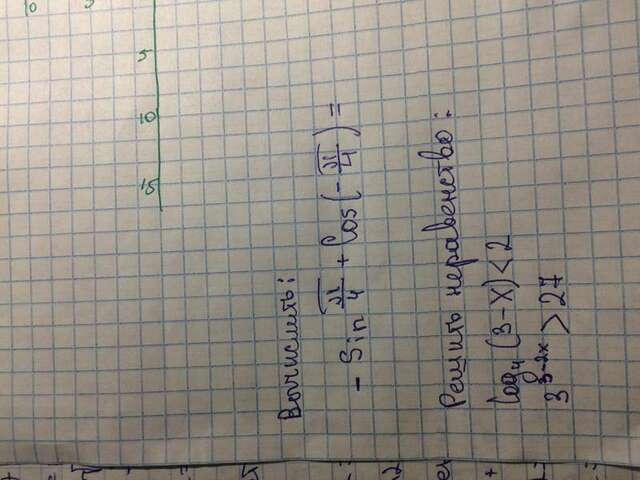 Вычислить:
- Sin π/4 + Cos(-π/4) =
Решить неравенство:
log₄ (3-x) < 2
3^(3-2x) > 27